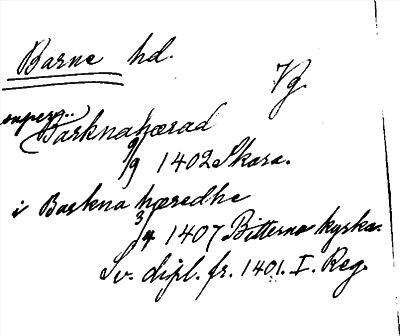 Barne hd.
Vg
superg..
Barknahærad
9/9 1402 Skara.
i Barkna hæredhe
3/4 1407 Bitterna kyrka.
Sv. dipl. fr. 1401. I. Reg.